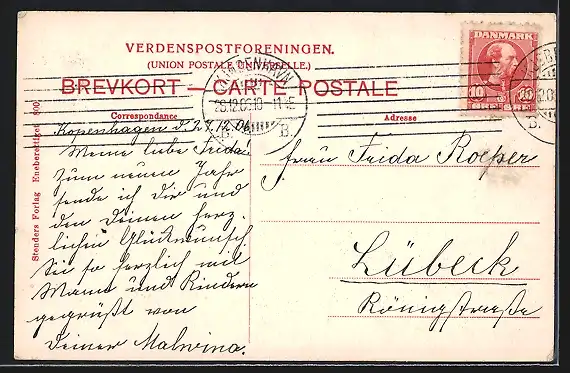 VERDENSPOSTFORENINGEN.
(UNION POSTALE UNIVERSELLE.)
BREVKORT — CARTE POSTALE
Correspondance
Adresse
DANMARK
10 10
KJØBENHAVN
B.
B.
Stenders Forlag Eneberettiget 800
Kopenhagen d. 27/12.06
Meine liebe Frida
zum neuen Jahr
sende ich dir und
den Deinen herz-
lichen Glückwunsch
Sei so herzlich mit
Mann und Kindern
gegrüßt von
Deiner Malwina.
Frau Frida Roeper
Lübeck
Königstraße